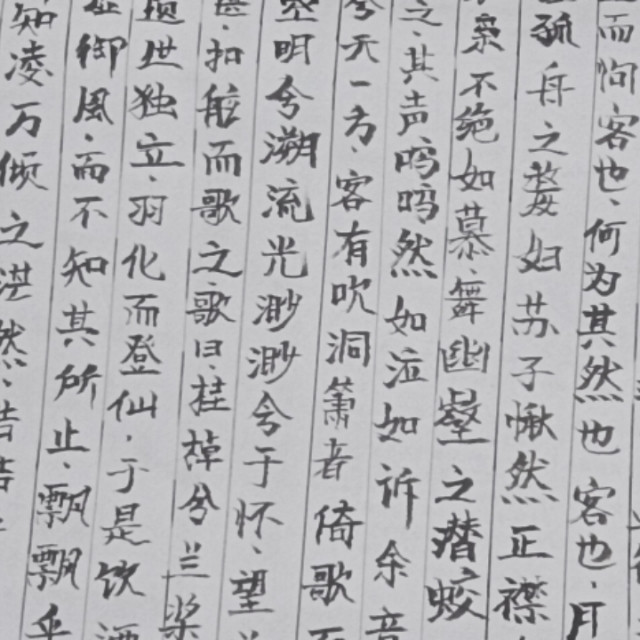 知凌万倾之茫然、浩
御風、而不知其所止、飘飘乎
遗世独立、羽化而登仙、于是饮酒
扣舷而歌之、歌曰、桂棹兮兰桨
空明兮溯流光渺渺兮于怀、望
兮天一方、客有吹洞箫者倚歌而
之、其声呜呜然如泣如诉余音
袅不绝如慕、舞幽壑之潜蛟
孤舟之嫠妇苏子愀然正襟
而问客也、何为其然也客也、月